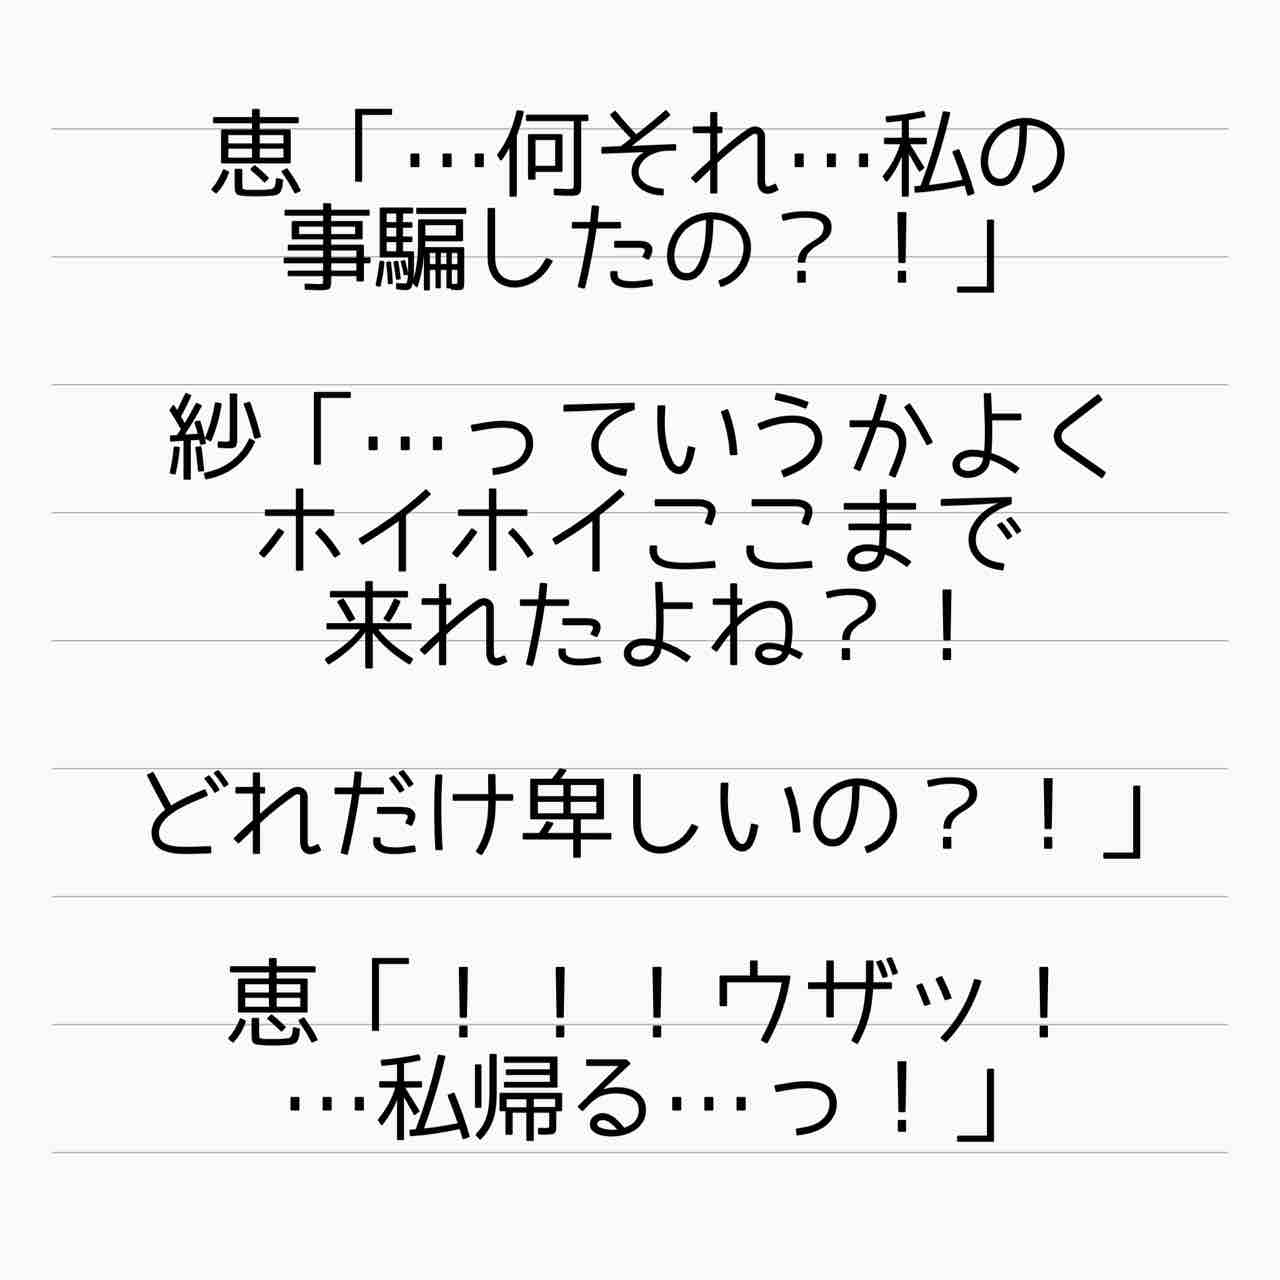 恵「…何それ…私の
事騙したの？！」
紗「…っていうかよく
ホイホイここまで
来れたよね？！
どれだけ卑しいの？！」
恵「！！！ウザッ！
…私帰る…っ！」